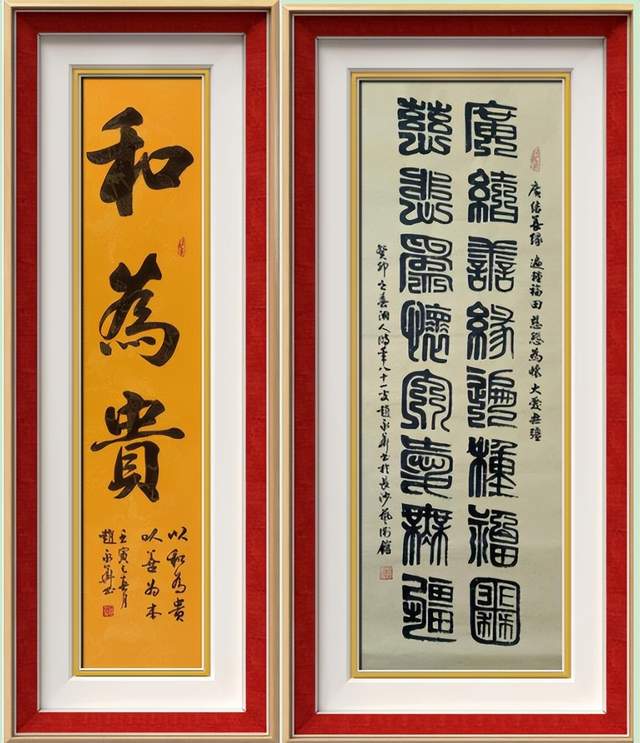 和為貴
以和為貴
以善为本
壬寅之春月
趙永華书
广结善缘 遍种福田 慈悲為懷 大愛無疆
廣結善緣遍種福田
慈悲為懷大愛無疆
癸卯之春湘人時年八十一岁趙永華书於長沙藝術館